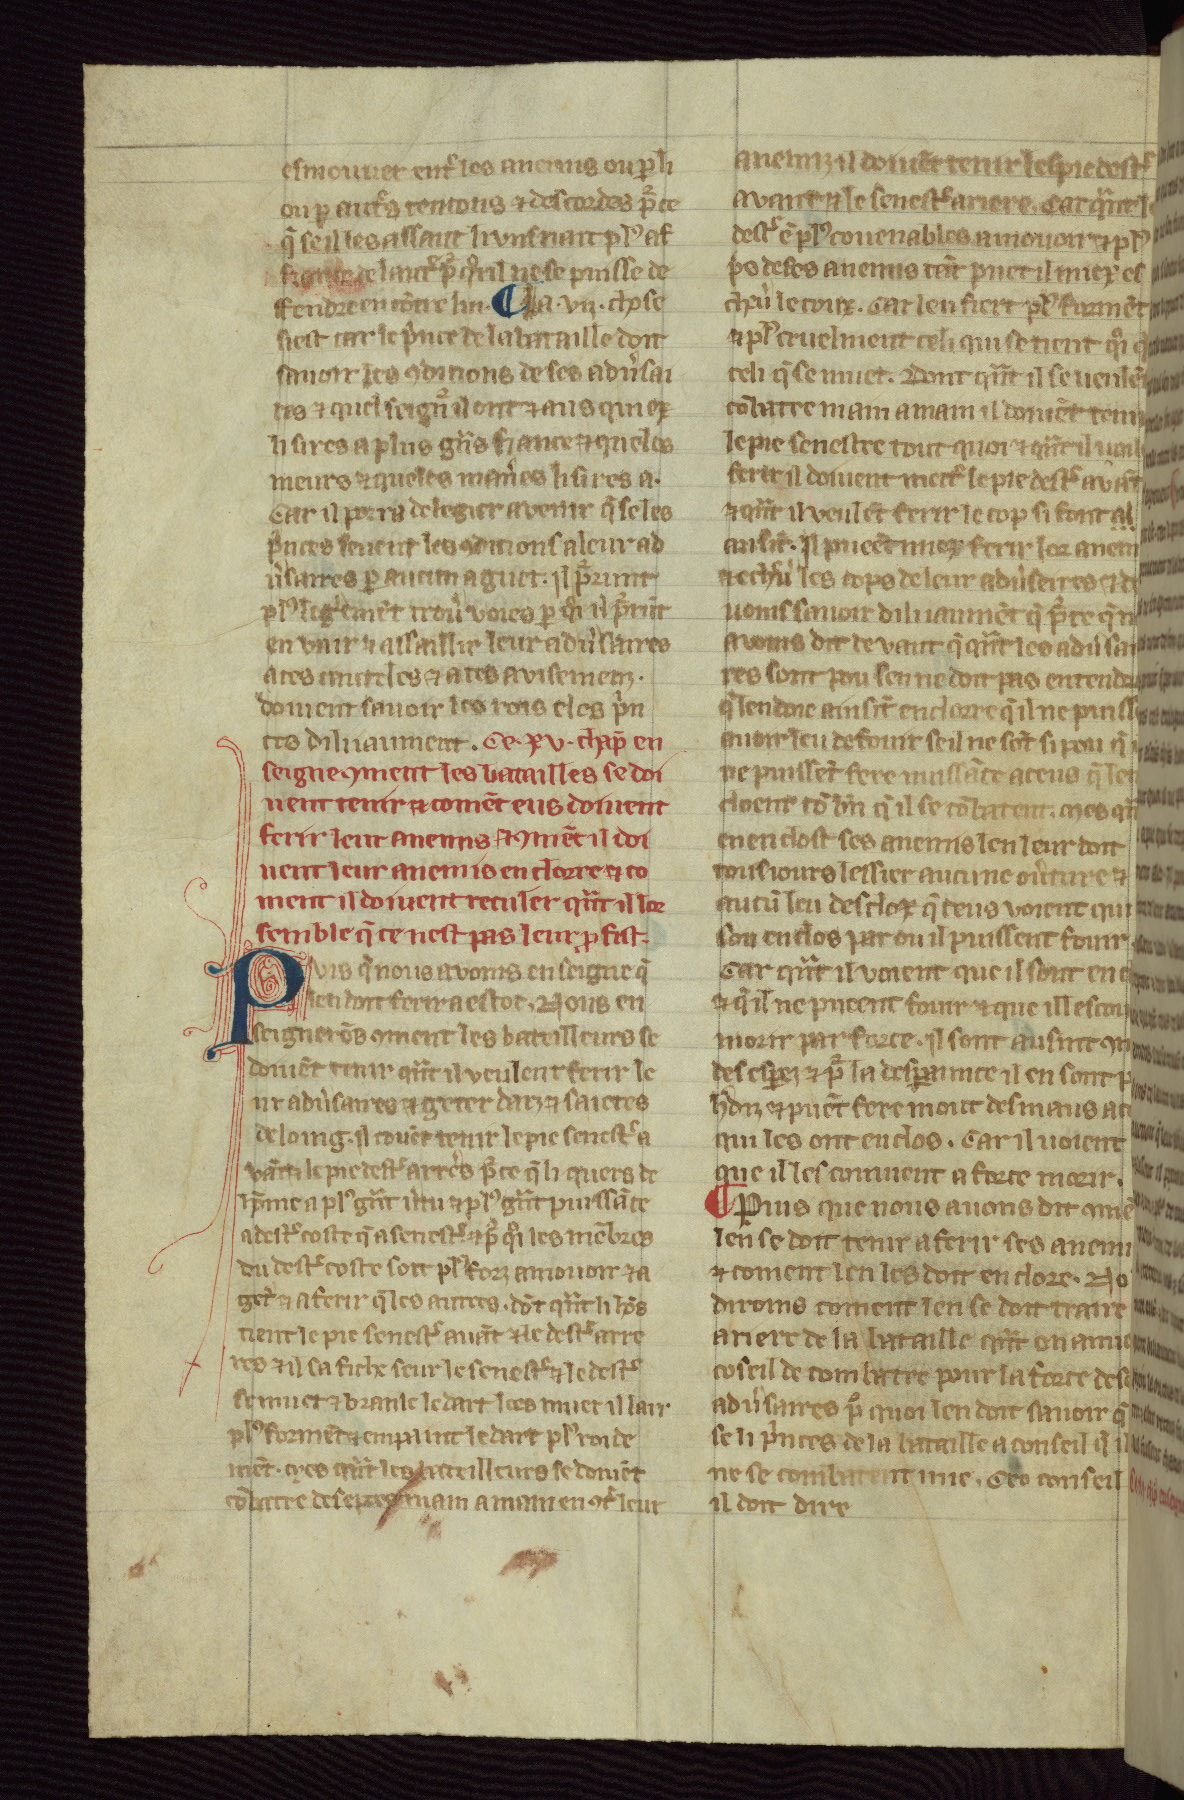 esmouuet entr̃ les anemis ou ꝑ li
ou ꝑ autr̃s tencons ⁊ descordes p̃ ce
q̃ se il les assaut li uns n'ait pl᷒ af
fiance de lautr̃ p̃ q̃i il ne se puisse de
ffendre encontre lui. La .vij. chose
siest car le p̃nce de la bataille doit
sauoir les ꝯdicions de ses adũsai
res ⁊ quel seign̄r il ont ⁊ a us quiex
li sires a plus gñs fiance ⁊ queles
meurs ⁊ queles mañes li sires a.
Car il porra de legier auenir q̃ se les
p̃nces seuent les ꝯdicions a leur ad
ũsaires ꝑ aucun aguet. Il p̃runt
pl᷒ leg̃emẽt trou̾ voies ꝑ q̃i il p̃rũt
en vair ⁊ assaillir leur adũsaires
doiuent sauoir les rois ⁊ les p̃n
ces diliaument. Ce .xv. chap̃ en
seigne ꝯment les batailles se doi
uent tenir ⁊ comẽt eus doiuent
ferir leur anemis ⁊ ꝯmẽt il doi
uent leur anemis enclorre ⁊ co
ment il doiuent reculer qũt il lor
semble q̃ ce nest pas leur ꝓfist.
Puis q̃ nous auons enseigne q̃
len doit ferir a estoc. Nous en
seignerõs ꝯment les batailleurs se
doiuẽt tenir qũt il veulent ferir le
ur adũsaires ⁊ geter darz ⁊ saietes
de loing. Il couiẽt tenir le pie senest̃ a
vãt ⁊ le pie dest̃ arrẽs p̃ ce q̃ li quers de
lõme a pl᷒ gñt ũtu ⁊ pl᷒ gñt puissãce
a dest̃ coste q̃ a senest̃ ⁊ p̃ q̃i les mẽbres
du dest̃ coste sont pl᷒ forz a mouoir ⁊ a
get̃ ⁊ a ferir q̃ les autres. dõt qũt li hõs
tient le pie senest̃ auãt ⁊ le dest̃ arre
res ⁊ il sa fiche seur le senest̃ ⁊ le dest̃
se muet ⁊ branle le dart lors muet il lair
pl᷒ formẽt ⁊ empaint le dart pl᷒ roide
mẽt. Mes qũt les batailleurs se doiuẽt
cõbatre despees main a main en ꝯt̃ leur
anemiz il doiuẽt tenir les pie dest̃
auant ⁊ le senest̃ ariere. Car qũt l
dest̃ ẽ pl᷒ couenables a mouoir ⁊ pl᷒
p̃s de ses anemis tãt puet il miex es
cheũ le coux. Car len fiert pl᷒ formẽt
⁊ pl᷒ cruelment celi qui se tient q̃i q̃
celi q̃ se muet. Dont qũt il se ueulẽt
cõbatre main a main il doiuẽt tenir
le pie senestre tout quoi ⁊ qũt il uuil
ferir il doiuent metr̃ le pie dest̃ auãt
⁊ qũt il veulẽt ferir le cop si font al
ausit. Il pueẽt miex ferir lor anem
⁊ echeũ les cops de leur adũseires ⁊ de
uons sauoir diliaumẽt q̃ p̃ ce q̃ n
auons dit deuant q̃ qũt les adũsai
res sont pou len ne doit pas entendre
q̃ len doie ainsit enclorre q̃ il ne puisse
auoir leu de fouir se il ne sõt si pou q̃
ne puissẽt fere nuissãce a ceus q̃ len
cloent cõbiẽ q̃ il se cõbatent. Mes qũt
en enclost ses anemis len leur doit
tousiours lessier aucune oũture ⁊
aucũ leu desclox q̃ ceus voient qui
son enclos par ou il puissent fouir
Car qũt il voient que il sont enc
⁊ q̃ il ne pueent fouir ⁊ que il les coui
morir par force. Il sont ausint ꝯm
desesꝑez ⁊ p̃ la desꝑaunce il en sont p
hdiz ⁊ puẽt fere mout des maus a ce
qui les ont enclos. Car il uoient
que il les conuient a force morir.
Puis que nous auons dit ꝯmẽ
len se doit tenir a ferir ses anemi
⁊ coment len les doit enclore. No
dirons coment len se doit traire
ariere de la bataille qũt on a mie
coseil de combatre pour la force des
adũsaires p̃ quoi len doit sauoir q̃
se li p̃nces de la bataille a conseil q̃ il
ne se combatent mie. Ceo conseil
il doit dire